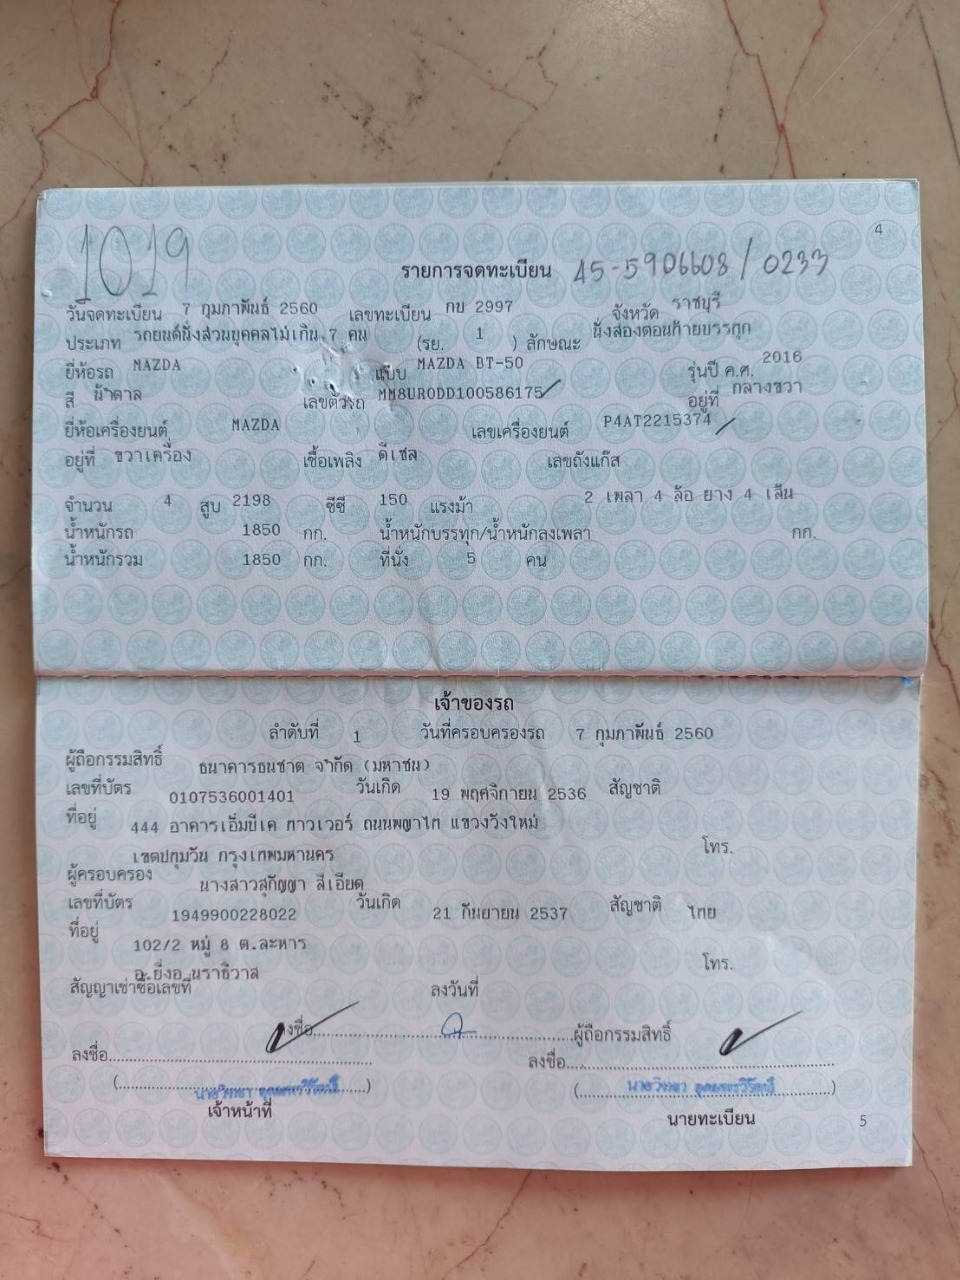 4
1019
รายการจดทะเบียน 45-5906608/0233
วันจดทะเบียน 7 กุมภาพันธ์ 2560 เลขทะเบียน กบ 2997 จังหวัด ราชบุรี
ประเภท รถยนต์นั่งส่วนบุคคลไม่เกิน 7 คน (รย. 1 ) ลักษณะ นั่งสองตอนท้ายบรรทุก
ยี่ห้อรถ MAZDA แบบ MAZDA BT-50 รุ่นปี ค.ศ. 2016
สี น้ำตาล เลขตัวรถ MM8UR0DD100586175 อยู่ที่ กลางขวา
ยี่ห้อเครื่องยนต์ MAZDA เลขเครื่องยนต์ P4AT2215374
อยู่ที่ ขวาเครื่อง เชื้อเพลิง ดีเซล เลขถังแก๊ส
จำนวน 4 สูบ 2198 ซีซี 150 แรงม้า 2 เพลา 4 ล้อ ยาง 4 เส้น
น้ำหนักรถ 1850 กก. น้ำหนักบรรทุก/น้ำหนักลงเพลา กก.
น้ำหนักรวม 1850 กก. ที่นั่ง 5 คน
เจ้าของรถ
ลำดับที่ 1 วันที่ครอบครองรถ 7 กุมภาพันธ์ 2560
ผู้ถือกรรมสิทธิ์ ธนาคารธนชาต จำกัด (มหาชน)
เลขที่บัตร 0107536001401 วันเกิด 19 พฤศจิกายน 2536 สัญชาติ
ที่อยู่ 444 อาคารเอ็มบีเค ทาวเวอร์ ถนนพญาไท แขวงวังใหม่
เขตปทุมวัน กรุงเทพมหานคร โทร.
ผู้ครอบครอง นางสาวสุกัญญา สีเอียด
เลขที่บัตร 1949900228022 วันเกิด 21 กันยายน 2537 สัญชาติ ไทย
ที่อยู่ 102/2 หมู่ 8 ต.ละหาร
อ.ยี่งอ นราธิวาส โทร.
สัญญาเช่าซื้อเลขที่ ลงวันที่
ลงชื่อ ผู้ถือกรรมสิทธิ์
ลงชื่อ ลงชื่อ
เจ้าหน้าที่ นายทะเบียน
5